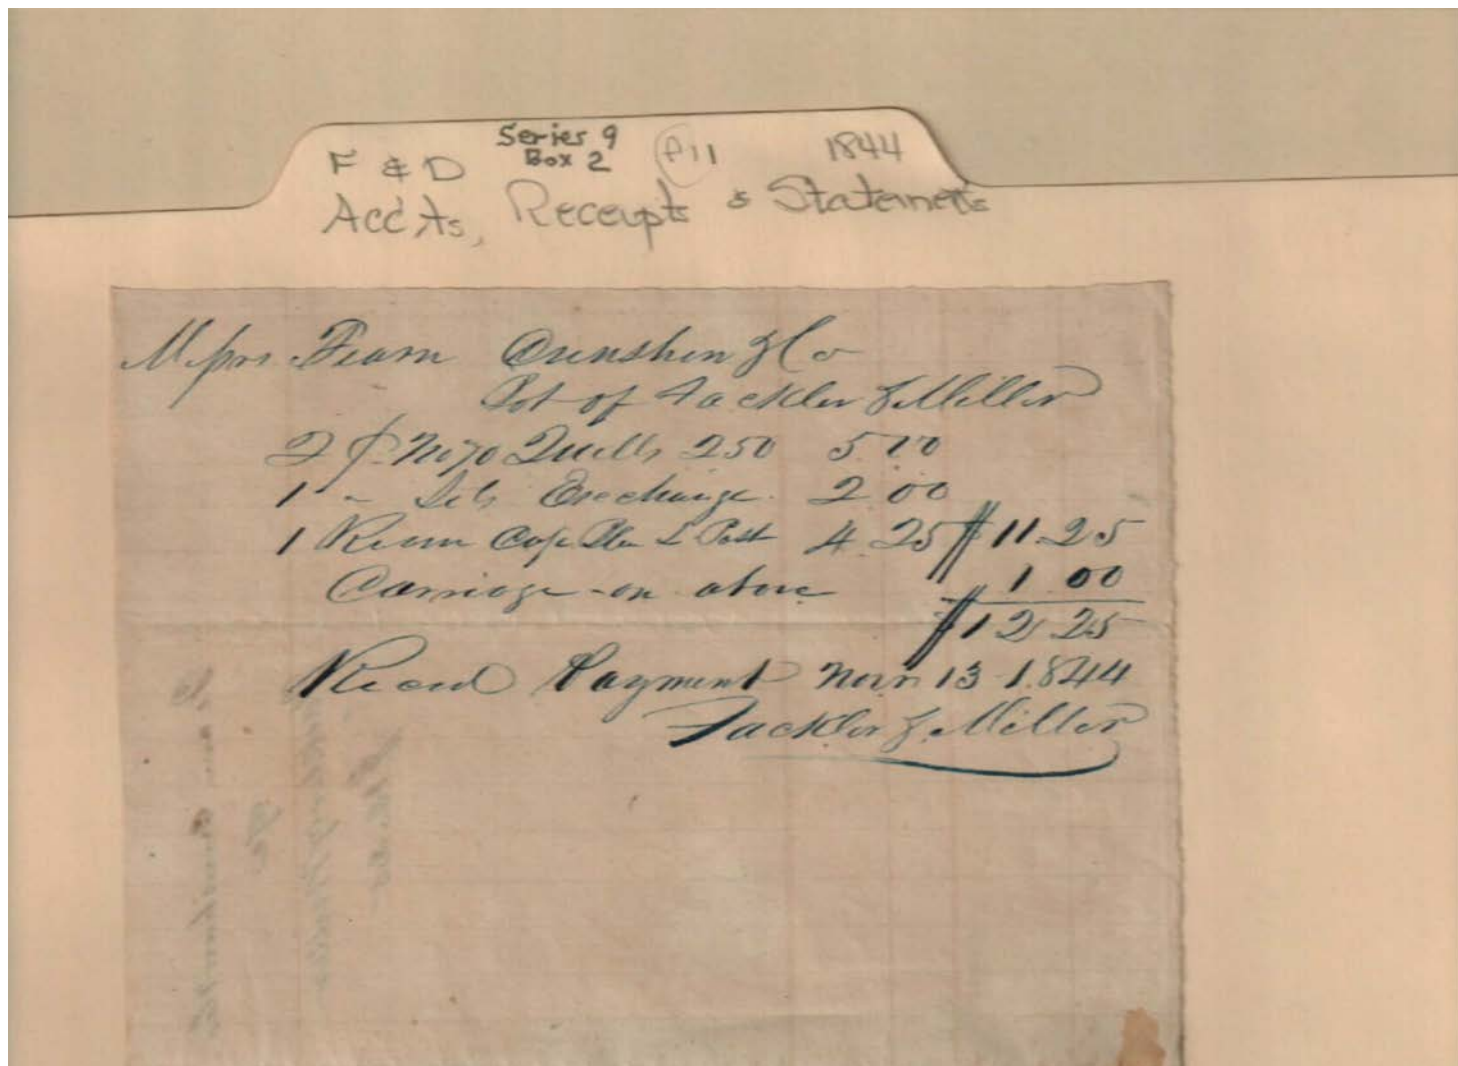 F & D Series 9 Box 2 P11 1844
Acc'ts, Receipts & Statements
Messrs. Fearn Crenshaw & Co
Bot of Fackler & Miller
2 No 70 Quills 250 5 00
1 " Exchange. 2 00
1 Ream Cap 4 25 $11.25
Carriage on above 1 00
$12 25
Recd Payment Novr 13 1844
Fackler & Miller